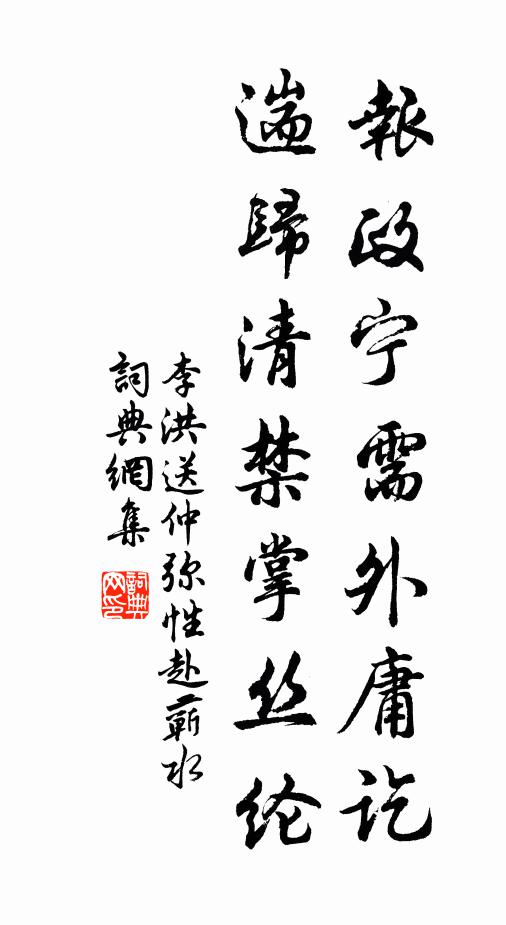 報政宁需外庸讫
遄歸清禁掌丝纶
李洪送仲弥性赴蕲水
詞典網集
詞典网印